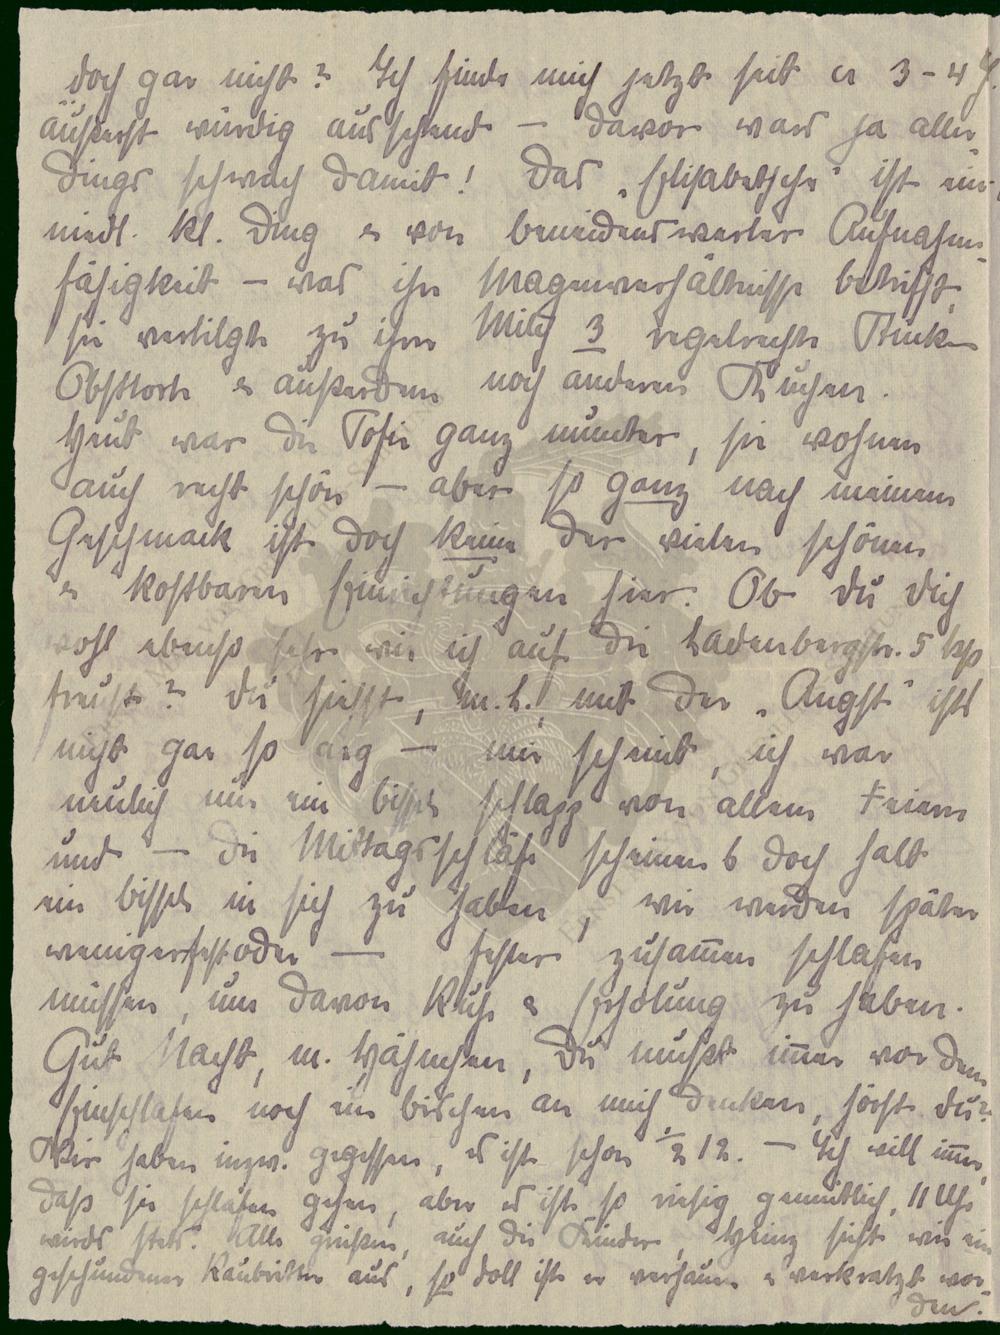 doch gar nicht? Ich finde mich jetzt seit ca 3-4 J.
äußerst würdig aussehend — davor wars ja aller-
dings schwach damit! Das „Elisabethche“ ist ein
niedl. kl. Ding & von beneidenswerter Aufnahme-
fähigkeit — was ihre Magenverhältnisse betrifft,
sie vertilgte zu ihrer Milch 3 regelrechte Stücke
Obsttorte & außerdem noch anderen Kuchen.
Heut war die ganz munter, sie wohnen
auch recht schön — aber so ganz nach meinem
Geschmack ist doch keine der vielen schönen
& kostbaren Einrichtungen hier. Ob du dich
wohl ebenso sehr wie ich auf die Ladenbergstr. 5
freust? Du siehst, m. L., mit der „Angst“ ists
nicht gar so arg — mir scheint, ich war
neulich nur ein bissel schlapp von allem Feiern
und — die Mittagsschläfe scheinen doch halt
ein bissel in sich zu haben, wir werden später
weniger fest oder — fester zusam̅en schlafen
müssen, um davon Ruhe & Erholung zu haben.
Gut Nacht, m. Hähnchen, Du mußt im̅er vor dem
Einschlafen noch ein bischen an mich denken, hörst du?
Wir haben inzw. gegessen, es ist schon ½ 12. — Ich will im̅er,
daß sie schlafen gehen, aber es ist so riesig gemütlich, 11 Uhr
wirds stets. Alle grüßen, auch die Kinder, Heinz sieht wie ein
geschundener Raubritter aus, so doll ist er verhauen & verkratzt wor-
den.